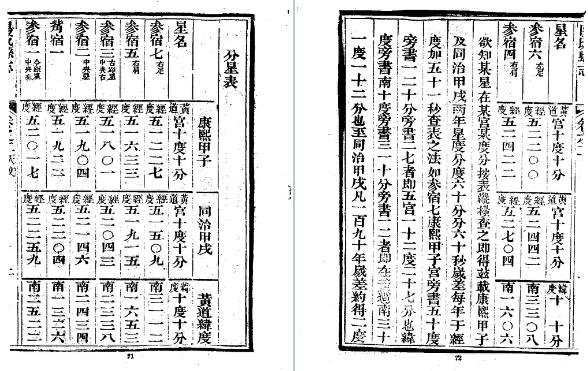 分星表
星名 康熙甲子 同治甲戌 黃道緯度
黃道經度 宮十度十分 黃道經度 宮十度十分 十度十分
參宿七 五一二二七 五一五〇九 南三一一二
參宿五 右肩 五一六三三 五一九一五 南一六五三
參宿三 五一八〇一 五二〇四三 南二三三八
參宿二 中央星 五一九〇四 五二一四六 南二四三四
觜宿一 五一九二三 五二二〇四 南一三二六
參宿一 五二〇一七 五二二五九 南二五二三
71
星名 黃道經度 宮十度十分 黃道經度 宮十度十分 緯度 十十分
參宿六 五二二〇〇 五二四四二 南三三〇八
參宿四 五二四二二 五二七〇四 南一六〇六
欲知某星在某宮某度分按表縱橫查之即得茲載康熙甲子
及同治甲戌兩年星度分度六十分分六十秒歲差每年于經
度加五十一秒查表之法如參宿七康熙甲子宮旁書五十度
旁書一二十分旁書二七者即五宮一十二度二十七分也緯
度旁書南十度旁書三一十分旁書一二者即在黃道南三十
一度一十二分也至同治甲戌凡一百九十年歲差約得二度
72